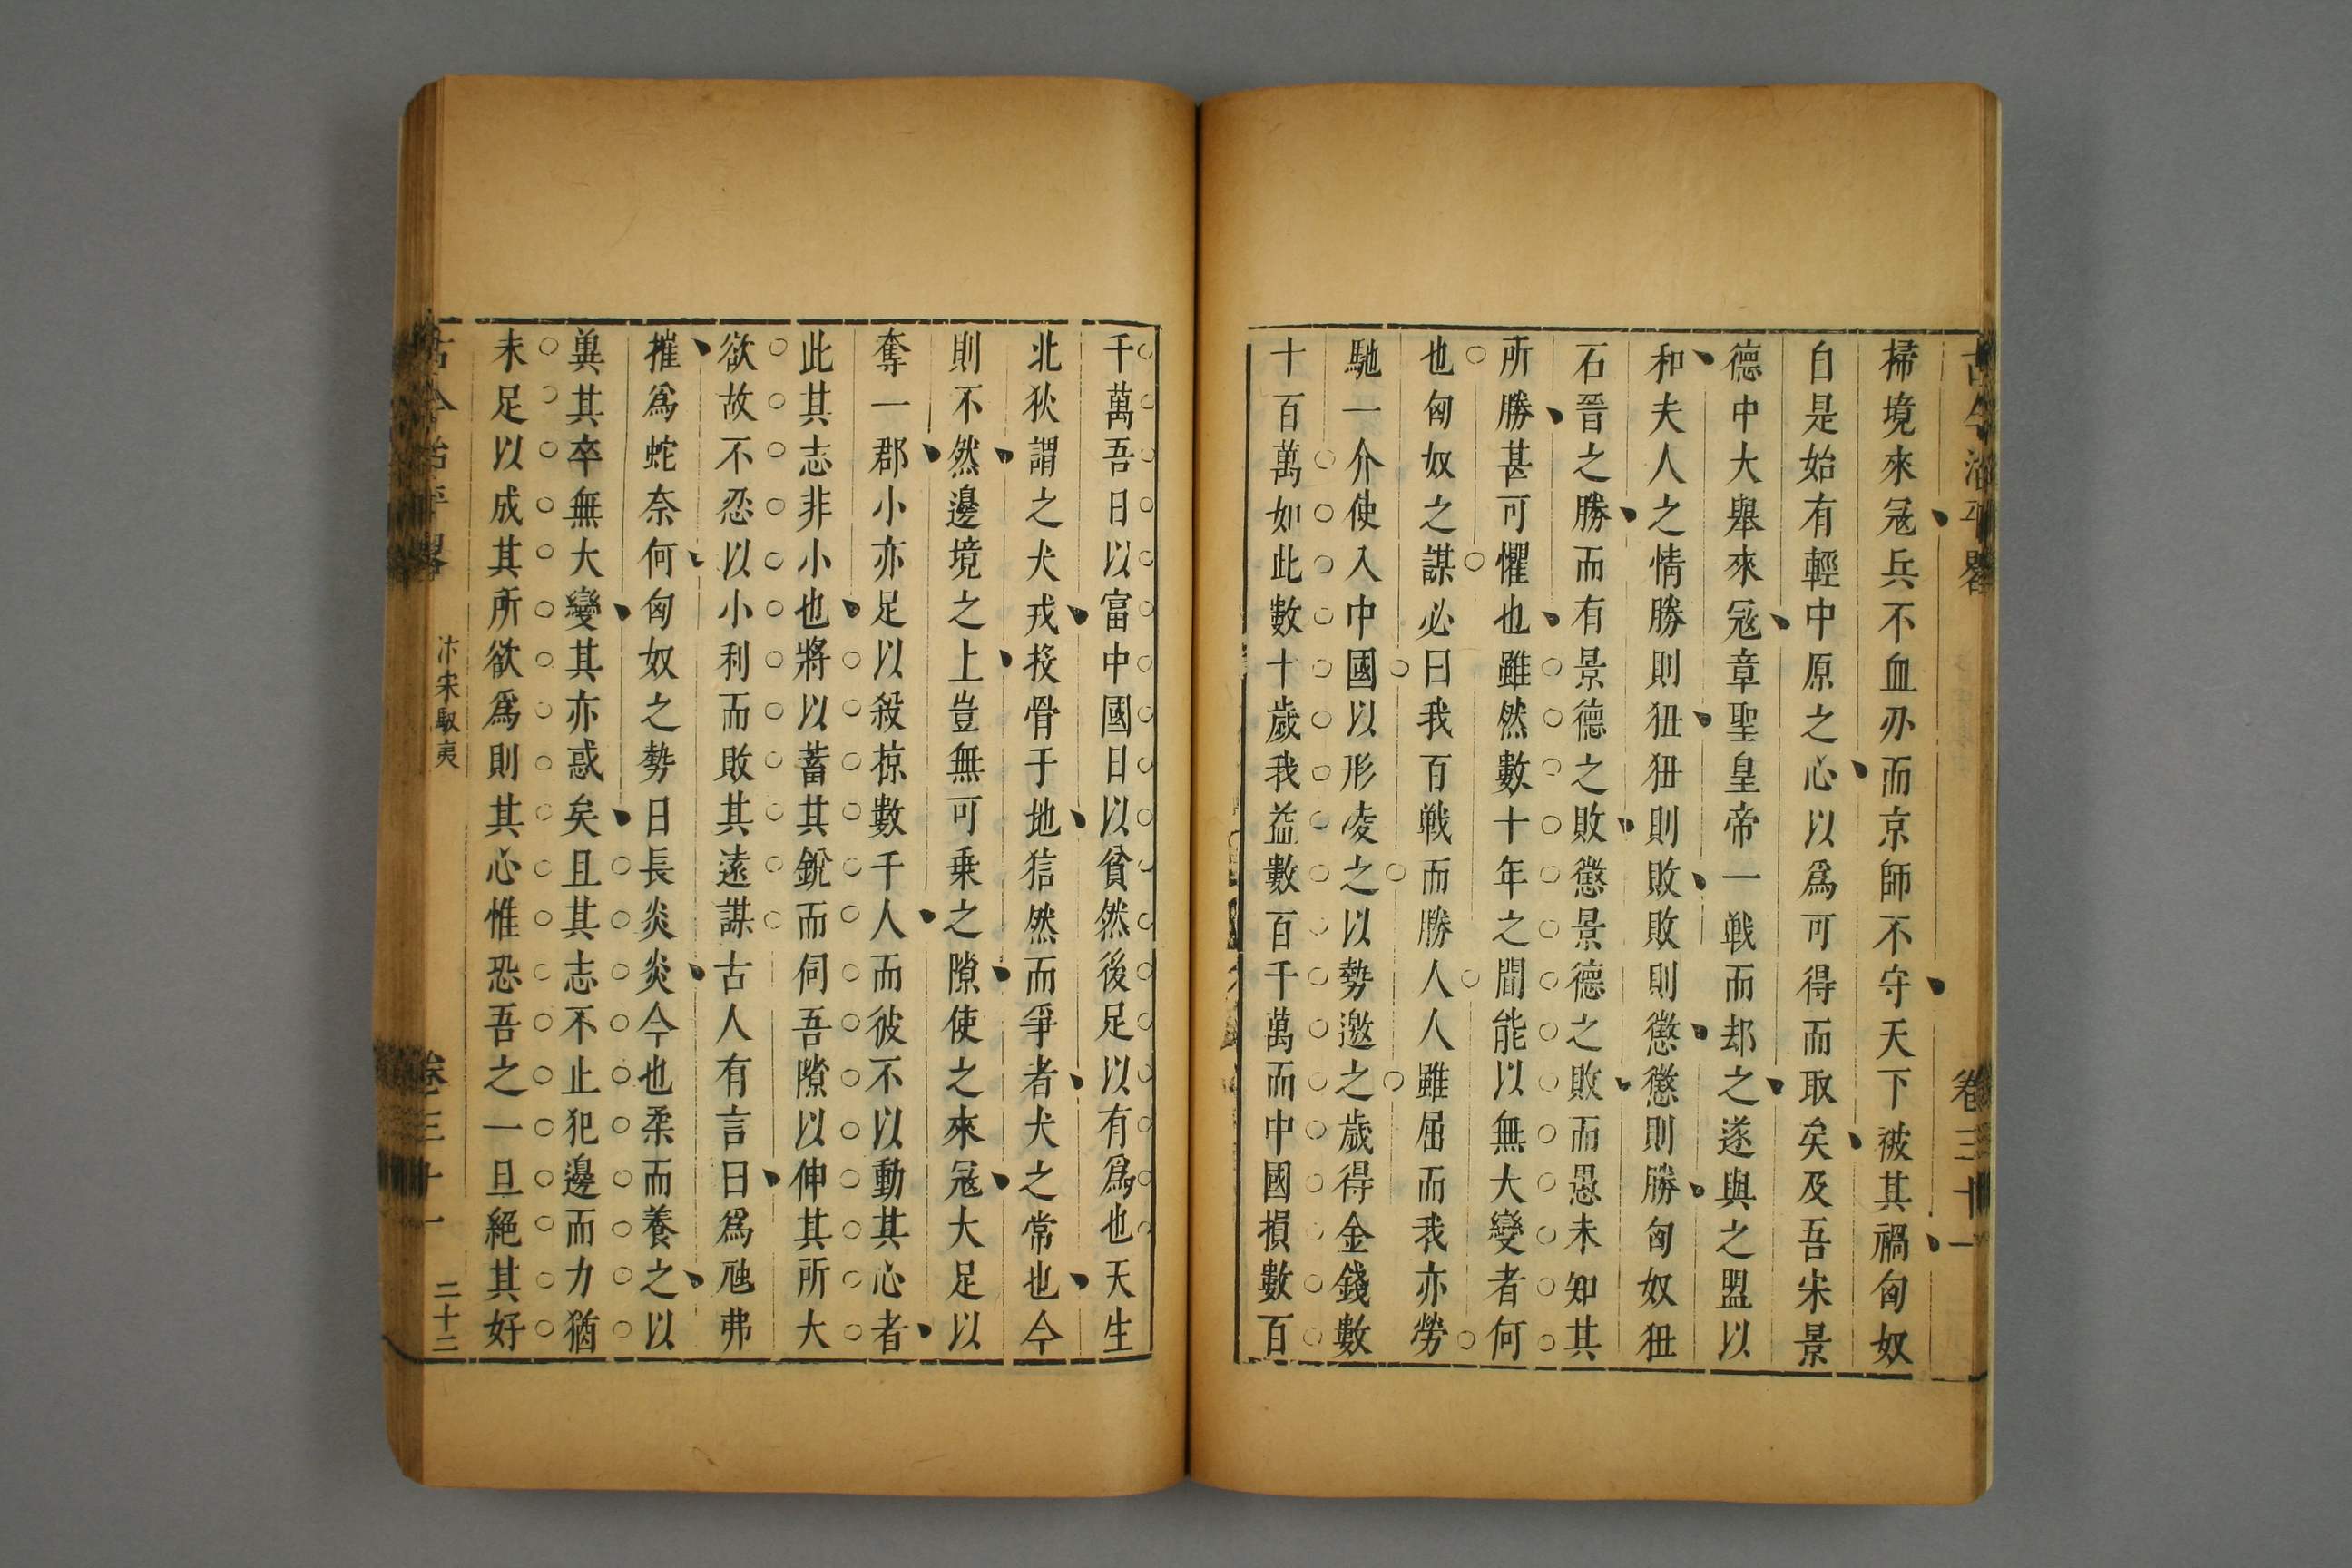 古今治平畧 卷三十一
掃境來冦兵不血刅而京師不守天下被其禍匈奴
自是始有輕中原之心以爲可得而取矣及吾宋景
德中大舉來冦章聖皇帝一戰而却之遂與之盟以
和夫人之情勝則狃狃則敗敗則懲懲則勝匈奴狃
石晉之勝而有景德之敗懲景德之敗而愚未知其
所勝甚可懼也雖然數十年之間能以無大變者何
也匈奴之謀必曰我百戰而勝人人雖屈而我亦勞
馳一介使入中國以形凌之以勢邀之歲得金錢數
十百萬如此數十歲我益數百千萬而中國損數百
千萬吾日以富中國日以貧然後足以有爲也天生
北狄謂之犬戎投骨于地狺然而爭者犬之常也今
則不然邊境之上豈無可乗之隙使之來冦大足以
奪一郡小亦足以殺掠數千人而彼不以動其心者
此其志非小也將以蓄其銳而伺吾隙以伸其所大
欲故不忍以小利而敗其遠謀古人有言曰爲虺弗
摧爲蛇奈何匈奴之勢日長炎炎今也柔而養之以
兾其卒無大變其亦惑矣且其志不止犯邊而力猶
未足以成其所欲爲則其心惟恐吾之一旦絕其好
古今治平畧 汴宋馭夷 卷三十一 二十二